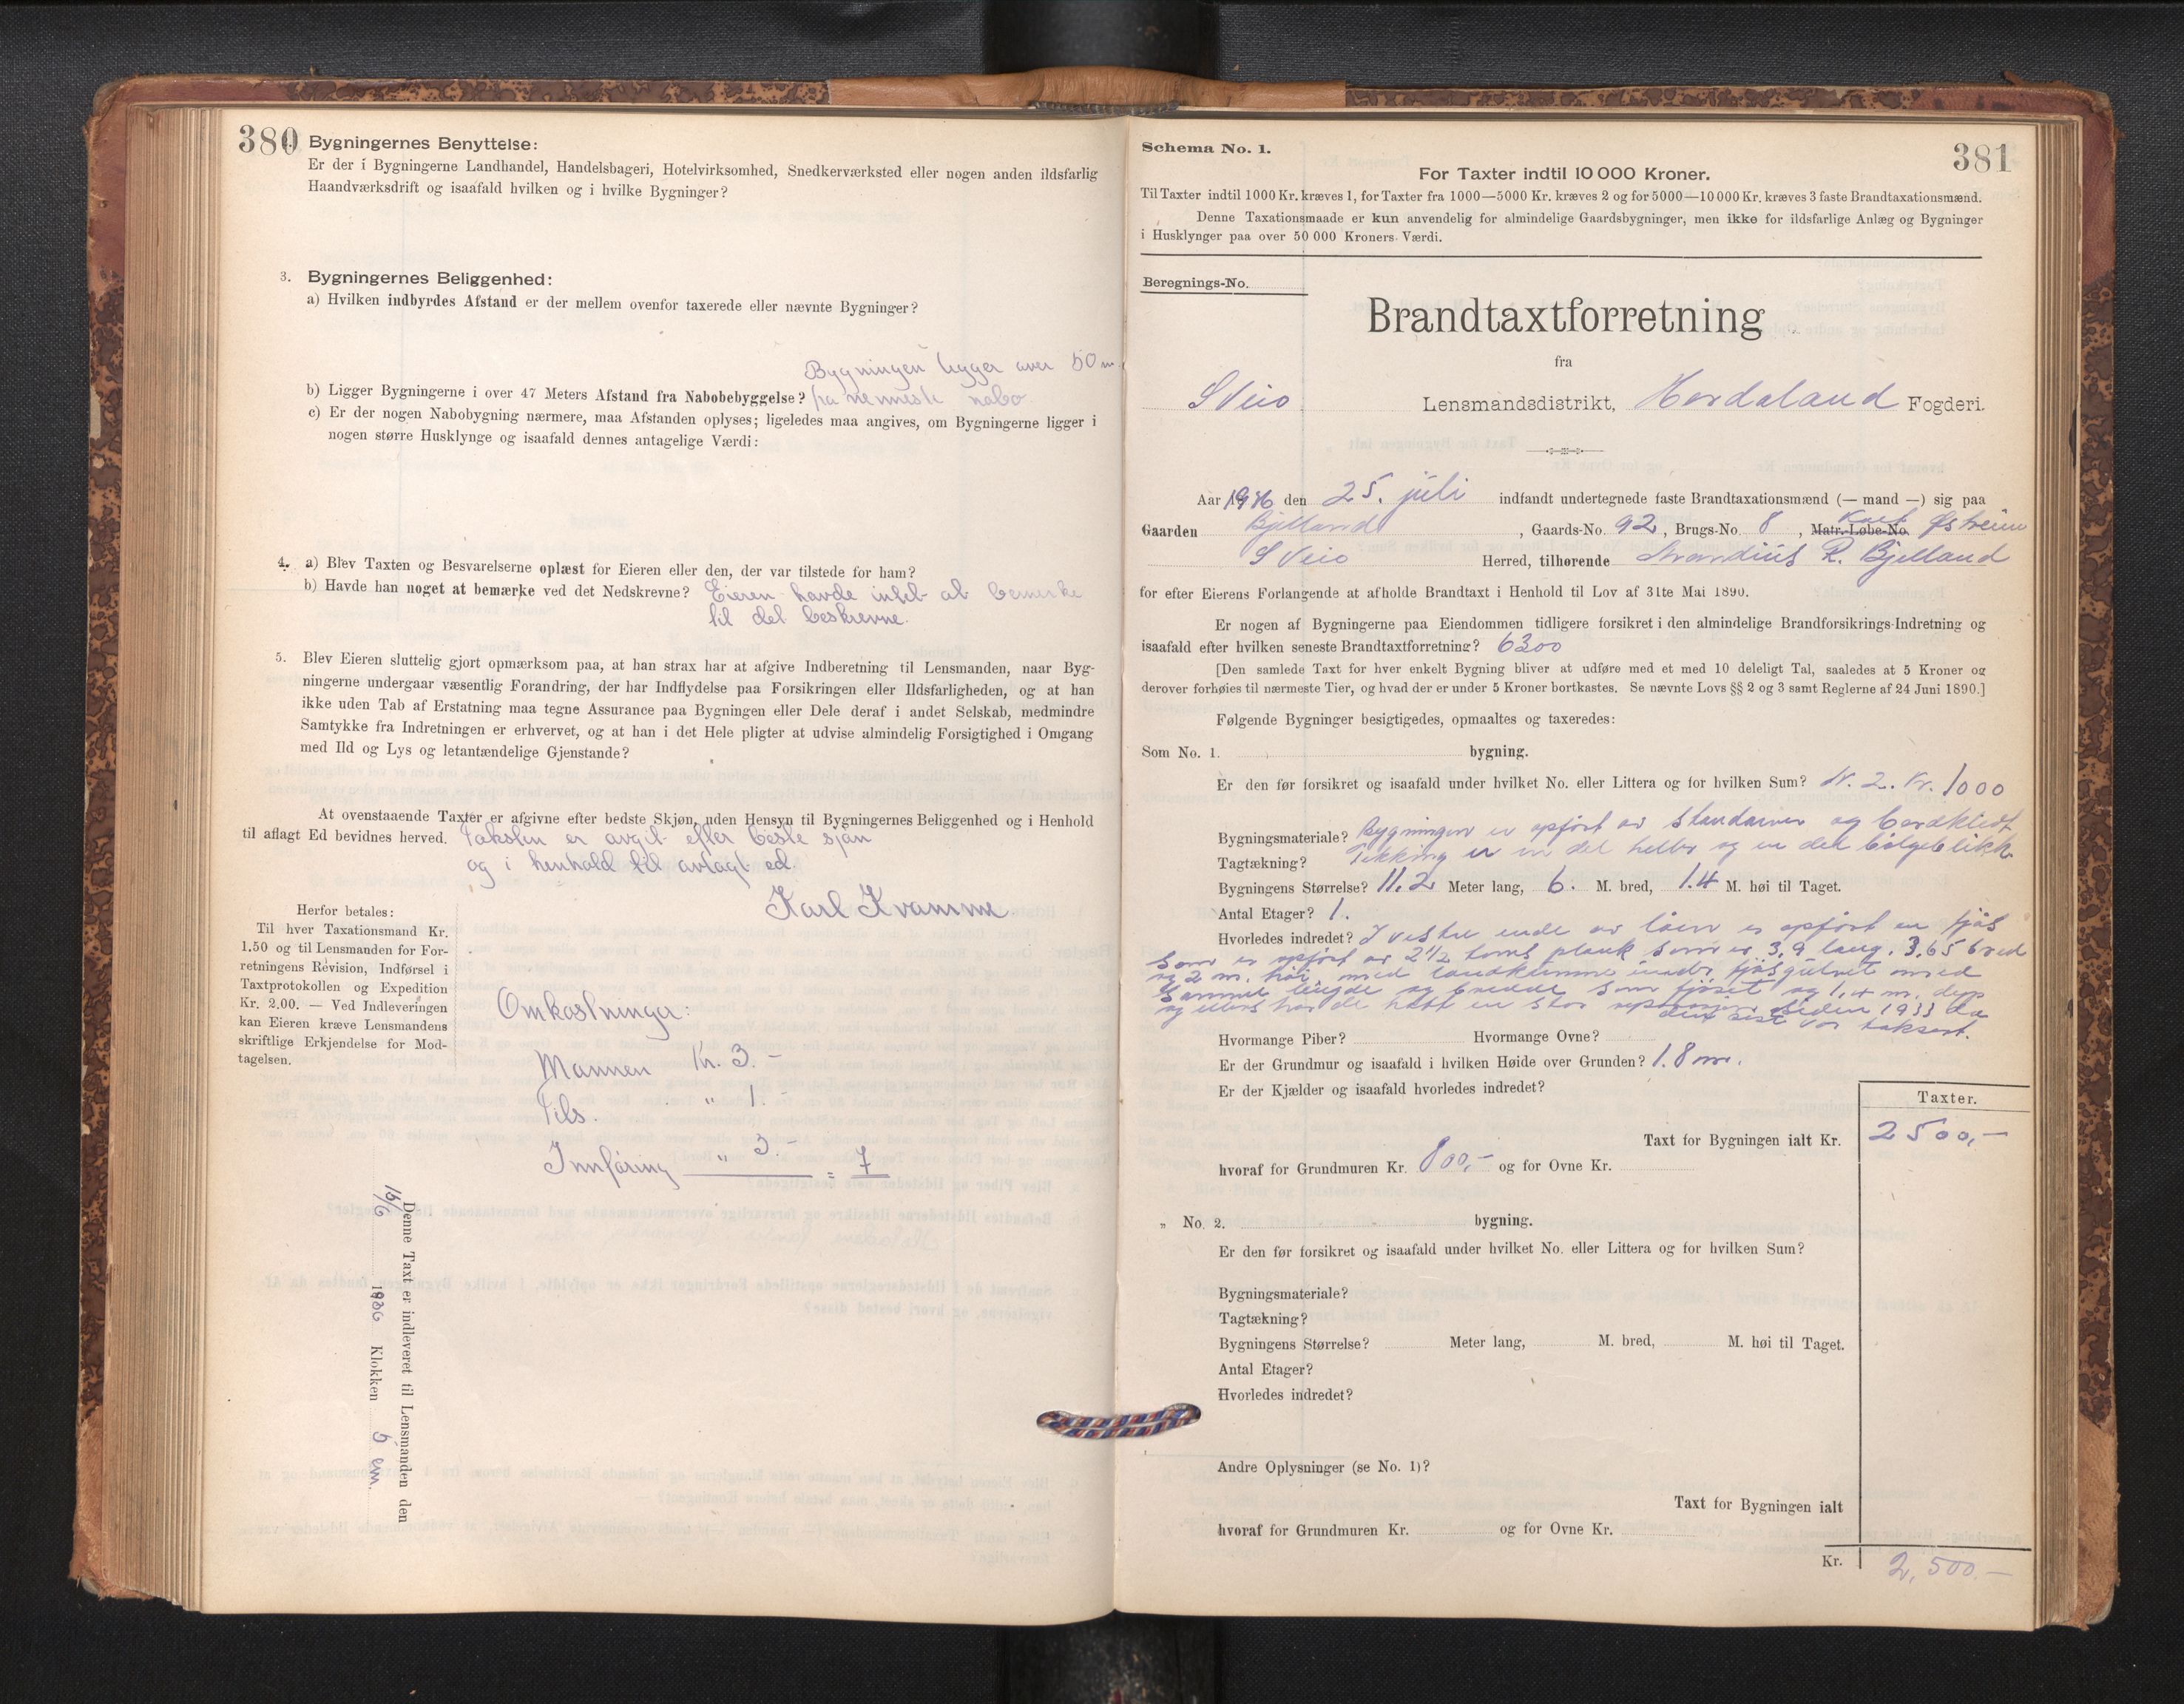 380
Bygningernes Benyttelse:
Er der i Bygningerne Landhandel, Handelsbageri, Hotelvirksomhed, Snedkerværksted eller nogen anden ildsfarlig
Haandværksdrift og isaafald hvilken og i hvilke Bygninger?
3. Bygningernes Beliggenhed:
a) Hvilken indbyrdes Afstand er der mellem ovenfor taxerede eller nævnte Bygninger?
Bygningen ligger over 50 m.
b) Ligger Bygningerne i over 47 Meters Afstand fra Nabobebyggelse? fra nermeste nabo
c) Er der nogen Nabobygning nærmere, maa Afstanden oplyses; ligeledes maa angives, om Bygningerne ligger i
nogen større Husklynge og isaafald dennes antagelige Værdi:
4. a) Blev Taxten og Besvarelserne oplæst for Eieren eller den, der var tilstede for ham?
b) Havde han noget at bemærke ved det Nedskrevne? Eieren havde intet at bemerke
til det beskrevne.
5. Blev Eieren sluttelig gjort opmærksom paa, at han strax har at afgive Indberetning til Lensmanden, naar Byg-
ningerne undergaar væsentlig Forandring, der har Indflydelse paa Forsikringen eller Ildsfarligheden, og at han
ikke uden Tab af Erstatning maa tegne Assurance paa Bygningen eller Dele deraf i andet Selskab, medmindre
Samtykke fra Indretningen er erhvervet, og at han i det Hele pligter at udvise almindelig Forsigtighed i Omgang
med Ild og Lys og letantændelige Gjenstande?
At ovenstaaende Taxter er afgivne efter bedste Skjøn, uden Hensyn til Bygningernes Beliggenhed og i Henhold
til aflagt Ed bevidnes herved. Taksten er avgit efter beste sjøn
og i henhold til avlagt ed.
Karl Kvamme
Herfor betales:
Til hver Taxationsmand Kr.
1.50 og til Lensmanden for For-
retningens Revision, Indførsel i
Taxtprotokollen og Expedition
Kr. 2.00. — Ved Indleveringen
kan Eieren kræve Lensmandens
skriftlige Erkjendelse for Mod-
tagelsen.
Omkostninger:
Mannen Kr. 3.-
Tils. " 1.-
Innføring " 3.- = 7
Denne Taxt er indleveret til Lensmanden den
16/6 1936 Klokken 6 em.
381
Schema No. 1.
For Taxter indtil 10 000 Kroner.
Til Taxter indtil 1000 Kr. kræves 1, for Taxter fra 1000—5000 Kr. kræves 2 og for 5000—10 000 Kr. kræves 3 faste Brandtaxationsmænd.
Denne Taxationsmaade er kun anvendelig for almindelige Gaardsbygninger, men ikke for ildsfarlige Anlæg og Bygninger
i Husklynger paa over 50 000 Kroners Værdi.
Beregnings-No.
Brandtaxtforretning
fra
Sveio Lensmandsdistrikt, Hordaland Fogderi.
Aar 1936 den 25. juli indfandt undertegnede faste Brandtaxationsmænd (— mand —) sig paa
Gaarden Bjelland, Gaards-No. 92, Brugs-No. 8, Matr.-Løbe-No. Østreim
Sveio Herred, tilhørende R. Bjelland
for efter Eierens Forlangende at afholde Brandtaxt i Henhold til Lov af 31te Mai 1890.
Er nogen af Bygningerne paa Eiendommen tidligere forsikret i den almindelige Brandforsikrings-Indretning og
isaafald efter hvilken seneste Brandtaxtforretning? 6300
[Den samlede Taxt for hver enkelt Bygning bliver at udføre med et med 10 deleligt Tal, saaledes at 5 Kroner og
derover forhøies til nærmeste Tier, og hvad der er under 5 Kroner bortkastes. Se nævnte Lovs §§ 2 og 3 samt Reglerne af 24 Juni 1890.]
Følgende Bygninger besigtigedes, opmaaltes og taxeredes:
Som No. 1. bygning.
Er den før forsikret og isaafald under hvilket No. eller Littera og for hvilken Sum? Nr. 2. Kr. 1000
Bygningsmateriale? Bygningen er opført av standarver og bordkledt
Tagtækning? Tekking er en del heller og en del bølgeblikk.
Bygningens Størrelse? 11.2 Meter lang, 6. M. bred, 1.4 M. høi til Taget.
Antal Etager? 1.
Hvorledes indredet? I vestre ende av løen er opført en fjøs
som er opført av 2 1/2 toms plank som er 3,9 lang. 3,65 bred
og 2 m. høi, med landkjemme under fjøsgulvet med
samme lengde og bredde som fjøset og 1,4 m. dyp
og ellers har de hatt en stor reparasjon siden 1933 da
den sist var taksert.
Hvormange Piber? Hvormange Ovne?
Er der Grundmur og isaafald i hvilken Høide over Grunden? 1.8 m.
Er der Kjælder og isaafald hvorledes indredet?
Taxter.
Taxt for Bygningen ialt Kr. 2500,-
hvoraf for Grundmuren Kr. 800,- og for Ovne Kr.
" No. 2. bygning.
Er den før forsikret og isaafald under hvilket No. eller Littera og for hvilken Sum?
Bygningsmateriale?
Tagtækning?
Bygningens Størrelse? Meter lang, M. bred, M. høi til Taget.
Antal Etager?
Hvorledes indredet?
Andre Oplysninger (se No. 1)?
Taxt for Bygningen ialt
hvoraf for Grundmuren Kr. og for Ovne Kr.
Kr. 2,500.-